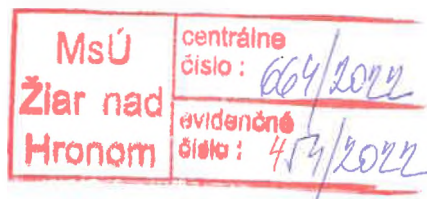 MsÚ
Žiar nad
Hronom
centrálne
číslo : 664/2022
evidenčné
číslo : 454/2022